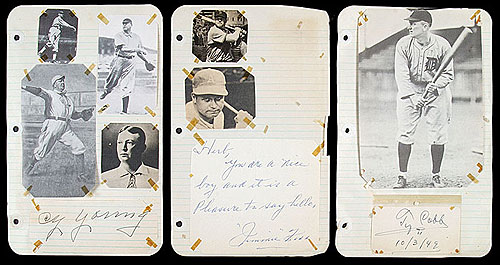 Cy Young
You are a nice
boy and it is a
Pleasure to say hello.
Jimmie Foxx
D
Ty Cobb
10/3/49